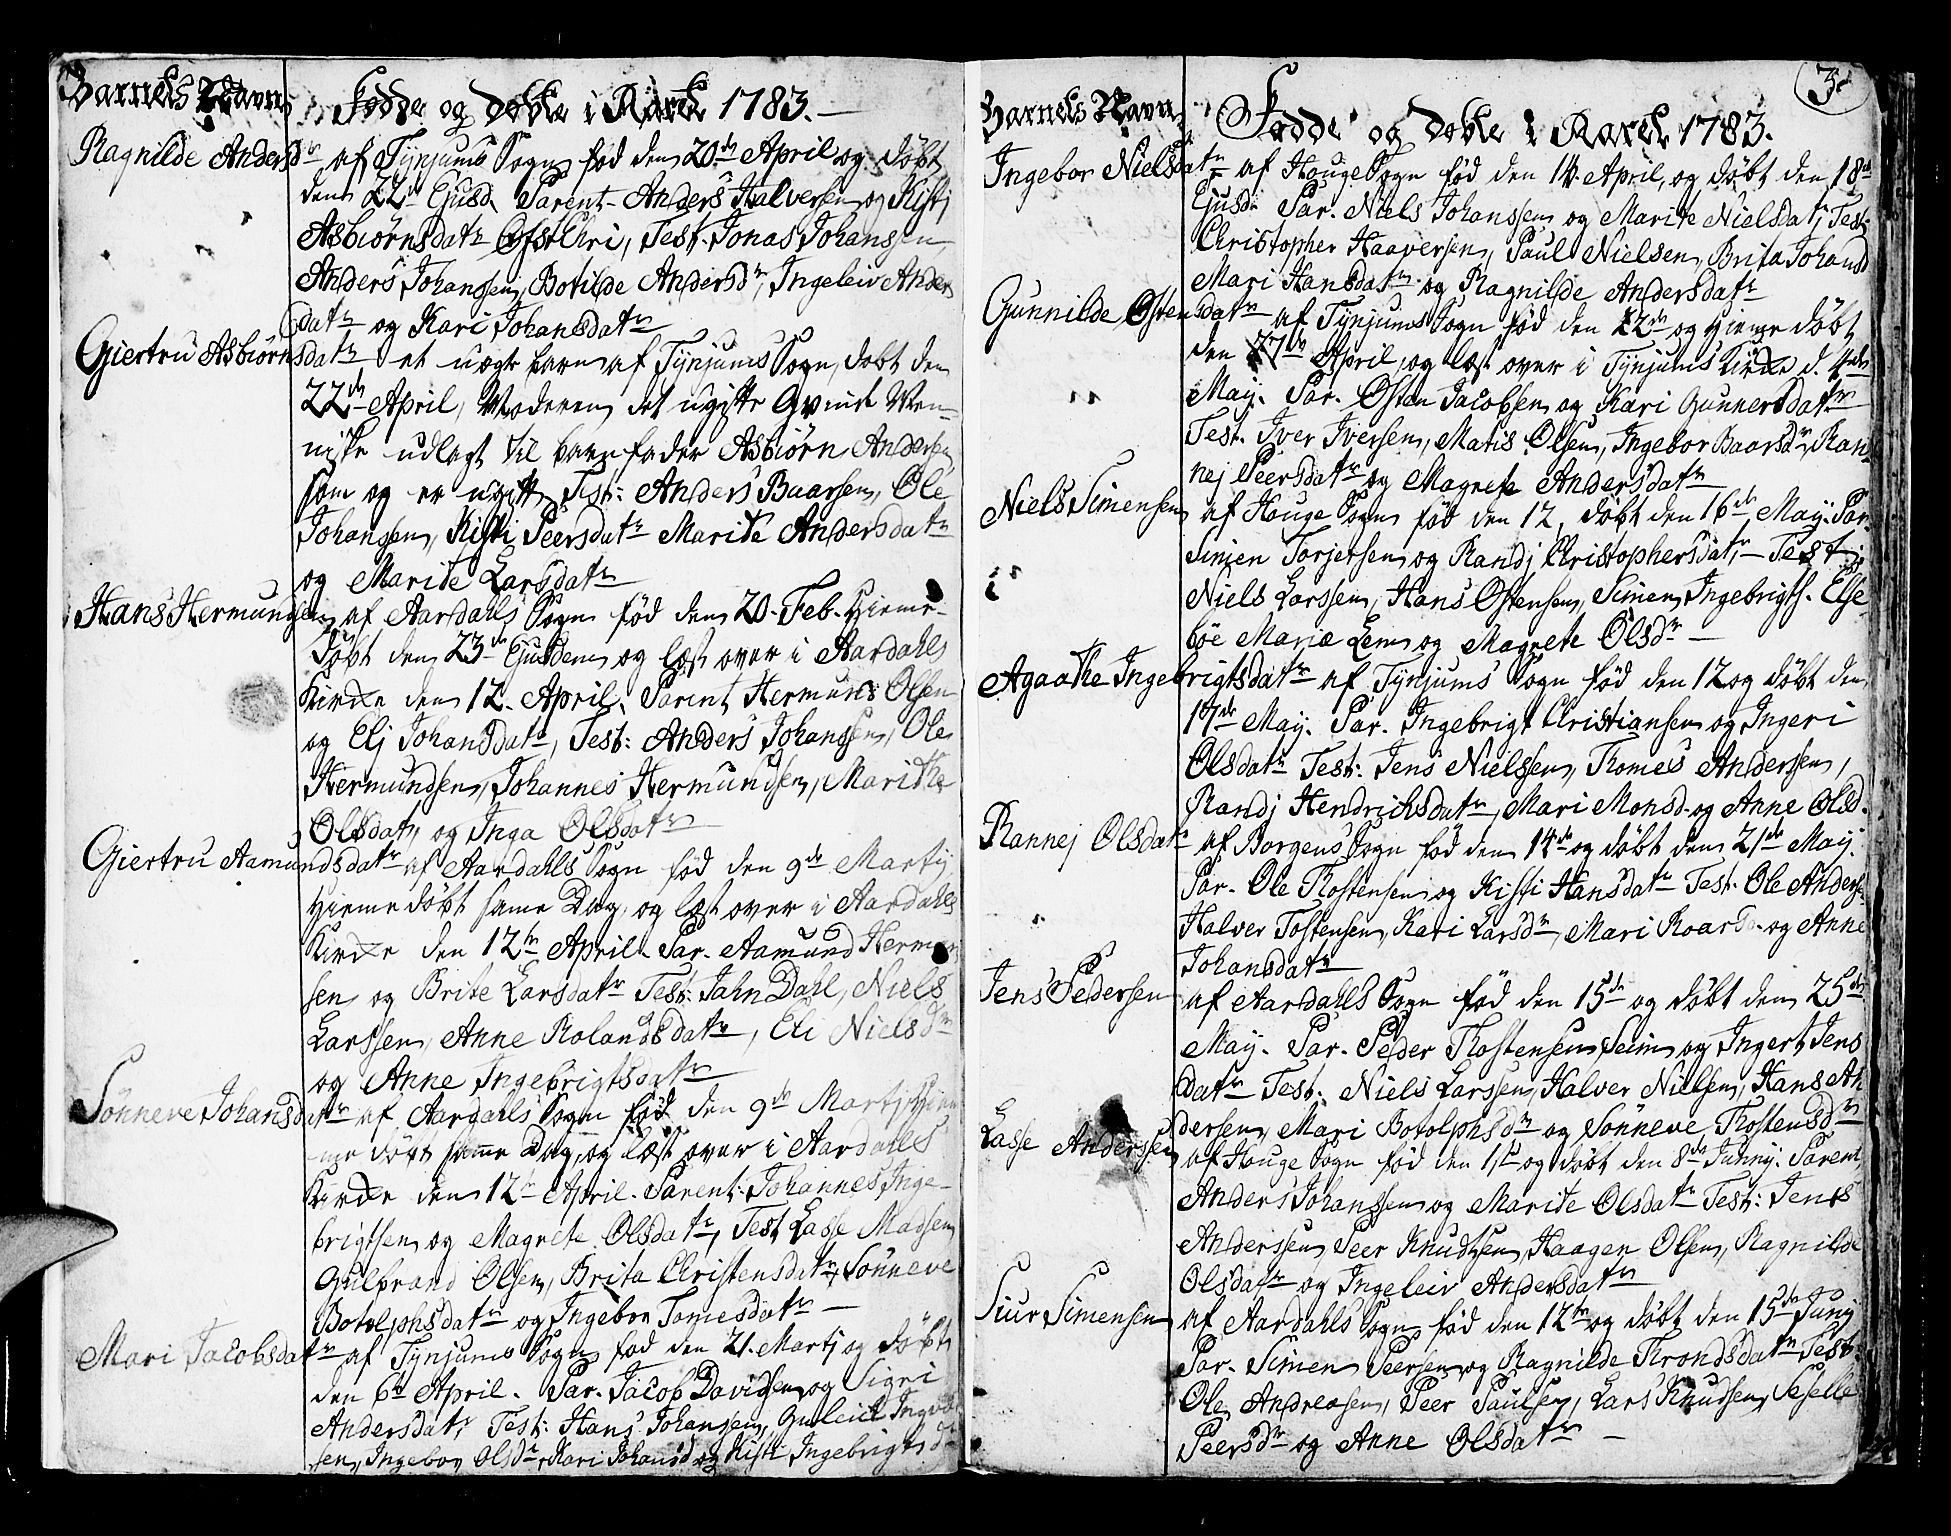 Barnets Navn
Fødde og Døbte i Aaret 1783.
Ragnilde Andersdr af Tynjums Sogn fød den 20de April og døbt
den 22de Ejusd. Parent. Anders Halversen og Kisti
Asbiørnsdatr Test. Jonas Johansen
Anders Johanssen, Botilde Andersdr, Ingeleiv Anders
datr og Kari Johansdatr
Giertru Asbiørnsdatr et uægte barn af Tynjums Sogn, døbt den
22de April, Moderen det ugifte Qvinde Men-
niske udlagt til barnefader Asbiørn Andersen
som og er ugift, Test: Anders Baarsen, Ole
Johansen, Kisti Peersdatr Marite Andersdatr
og Marite Larsdatr
Hans Hermundsen af Aardahls Sogn fød den 20. Feb. Hieme-
døbt den 23de Ejusdem og læst over i Aardahls
Kirke den 12. April. Parent Hermund Olsen
og Elj Johansdatr, Test: Anders Johanssen, Ole
Hermundsen, Johannes Hermundsen, Marithe
Olsdatr, og Inga Olsdatr
Giertru Aamundsdatr af Aardahls Sogn fød den 9de Martij
Hiemedøbt same Dag, og læst over i Aardahls
Kirke den 12te April. Par. Aamund Hermund
sen og Brite Larsdatr Test: Jahn Dahl, Niels
Larssen, Anne Rolandsdatr, Eli Nielsdr
og Anne Ingebrigtsdatr
Sønneve Johansdatr af Aardahls Sogn fød den 9de Martj, Hie
me døbt samme Dag, og læst over i Aardahls
Kirke den 12te April. Parent: Johannes Inge-
brigtsen og Magrete Olsdatr, Test Lasse Madsen
Gulbrand Olsen, Brita Christensdatr, Sønneve
Botolphsdatr og Ingebor Tomesdatr
Mari Jacobsdatr af Tynjums Sogn fød den 21. Martj og døbt
den 6te April. Par. Jacob Davidsen og Sigri
Andersdatr Test: Hans Johansen, Guleick Ingebr
sen, Ingebor Olsdr, Kari Johansd og Kisti Ingebrigtsd
3
Barnets Navn
Fødde og døbte i Aaret 1783.
Ingebor Nielsdatr af Houge Sogn fød den 14. April, og døbt den 18de
Ejusd: Par. Niels Johanssen og Marite Nielsdatr, Test:
Christopher Haaversen, Paul Nielsen, Brita Johansd
Mari Hansdatr og Ragnilde Andersdatr
Gunnilde Ostensdatr af Tynjums Sogn fød den 22de og Hieme døbt
den 27de April, og læst over i Tynjums Kirke d. 4de
May. Par. Østen Jacobsen og Kari Gunnersdatr
Test. Iver Iversen, Matis Olsen, Ingebor Baarsdr, Ran
nej Peersdatr og Magrete Andersdatr
Niels Simensen af Houge Sogn fød den 12, døbt den 16de May. Par.
Simen Torjersen og Randj Christophersdatr, Test:
Niels Larssen, Hans Ostensen, Simen Ingebrigts. Else
bøe Maria Lem og Magrete Olsdr
Agaathe Ingebrigtsdatr af Tynjums Sogn fød den 12 og døbt den
17de May. Par. Ingebrigt Christiansen og Ingeri
Olsdatr Test: Jens Nielssen, Thomes Anderssen,
Randj Hendrichsdatr, Mari Monsd. og Anne Olsd.
Rannej Olsdatr af Borgens Sogn fød den 14de og døbt den 21de May.
Par. Ole Thostensen og Kisti Hansdatr Test. Ole Anderse
Halver Tostensen, Kari Larsdr, Mari Roarsd. og Anne
Johansdatr
Jens Pedersen af Aardahls Sogn fød den 15de og døbt den 25de
May. Par. Peder Thostensen Seim og Ingert Jens
datr Test: Niels Larssen, Halver Nielsen, Hans An
dersen, Mari Botolphsdr og Sønneve Thostensdr
Lasse Anderssen af Houge Sogn fød den 1ste og døbt den 8de Junnij. Parent.
Anders Johanssen og Marite Olsdatr Test: Jens
Anderssen, Peer Knudtsen, Haagen Olsen, Ragnilde
Olsdatr og Ingeleiv Andersdatr
Siur Simensen af Aardahls Sogn fød den 12te og døbt den 15de Junij
Par. Simen Peersen og Ragnilde Throndsdatr Test
Ole Andreasen, Peer Paulsen, Lars Knudsen, Seselle
Peersdr og Anne Olsdatr